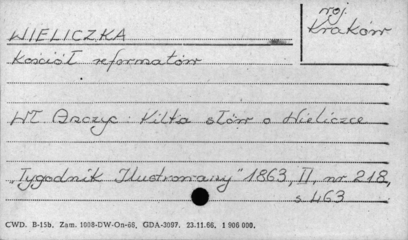 woj.
Kraków
WIELICZKA
Kościół reformatów
Wł. Anczyc: Kilka słów o Wieliczce
„Tygodnik Ilustrowany" 1863, II, nr 218,
s. 463
CWD. B-15b. Zam. 1008-DW-On-66, GDA-3097. 23.11.66, 1 900 000.